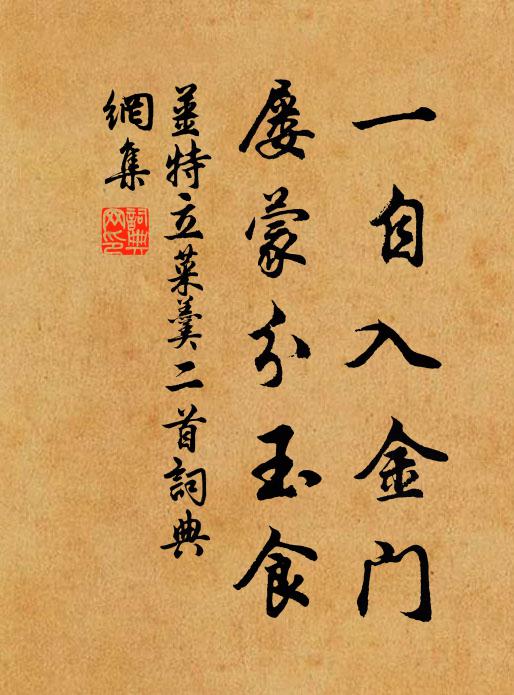 一自入金门
屡蒙分玉食
姜特立菜羹二首詞典
網集
詞典网印